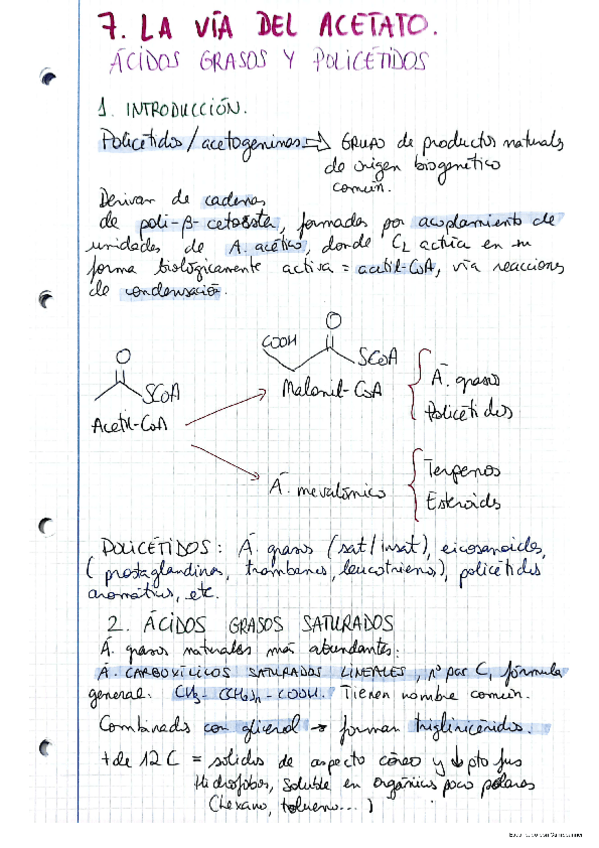 7. LA VÍA DEL ACETATO.
ÁCIDOS GRASOS Y POLICÉTIDOS
1. INTRODUCCIÓN.
Policétidos / acetogeninas ⇒ GRUPO de productos naturales
de origen biogenético
común.
Derivan de cadenas
de poli-β-cetoéster, formadas por acoplamiento de
unidades de Á. acético, donde C2 actúa en su
forma biológicamente activa = acetil-CoA, vía reacciones
de condensación.
O
COOH
SCoA
O
SCoA
Malonil-CoA
Á. grasos
Policétidos
Acetil-CoA
Á. mevalónico
Terpenos
Esteroides
POLICÉTIDOS: Á. grasos (sat/insat), eicosanoides,
(prostaglandinas, trombanos, leucotrienos), policétidos
aromáticos, etc.
2. ÁCIDOS GRASOS SATURADOS
Á. grasos naturales más abundantes:
Á. CARBOXÍLICOS SATURADOS LINEALES, nº par C, fórmula
general: CH3-(CH2)n-COOH. Tienen nombre común.
Combinados con glicerol → forman triglicéridos.
+ de 12 C = sólidos de aspecto céreo y ↓ pto fus
Hidrófobos, soluble en orgánicos poco polares
(hexano, tolueno...)